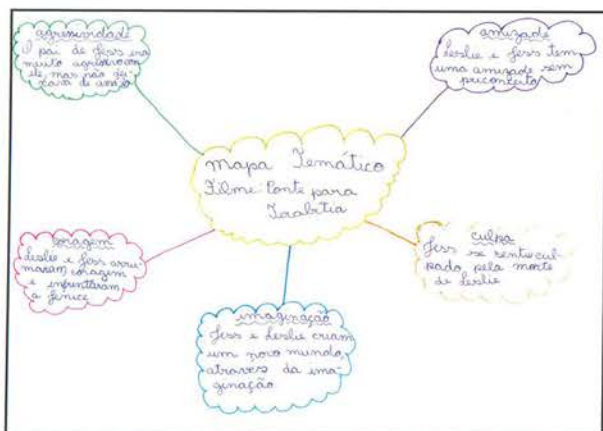 agressividade
O pai de Jess era
muito agressivo com
ele, mas não dei-
xava de amá-lo
amizade
Leslie e Jess tem
uma amizade sem
priconceito
Mapa Temático
Filme: Ponte para
Terabitia
coragem
Leslie e Jess arru-
maram coragem
e enfrentaram
a Jenice
culpa
Jess se sentiu cul-
pado pela morte
de Leslie
imaginação
Jess e Leslie criam
um novo mundo,
através da ima-
ginação